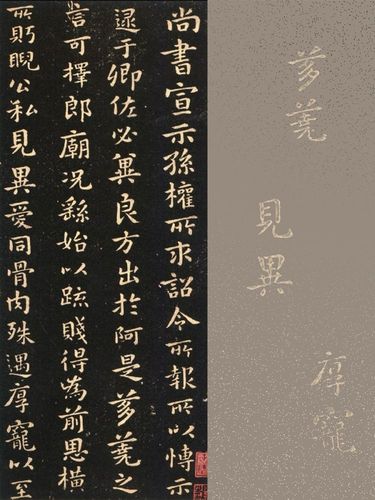 尚書宣示孫權所求詔令所報所以博示
逮于卿佐必冀良方出於阿是芻蕘之
言可擇郎廟況繇始以疏賤得為前思橫
所眄睨公私見異愛同骨肉殊遇厚寵以至
芻蕘
見異
厚寵